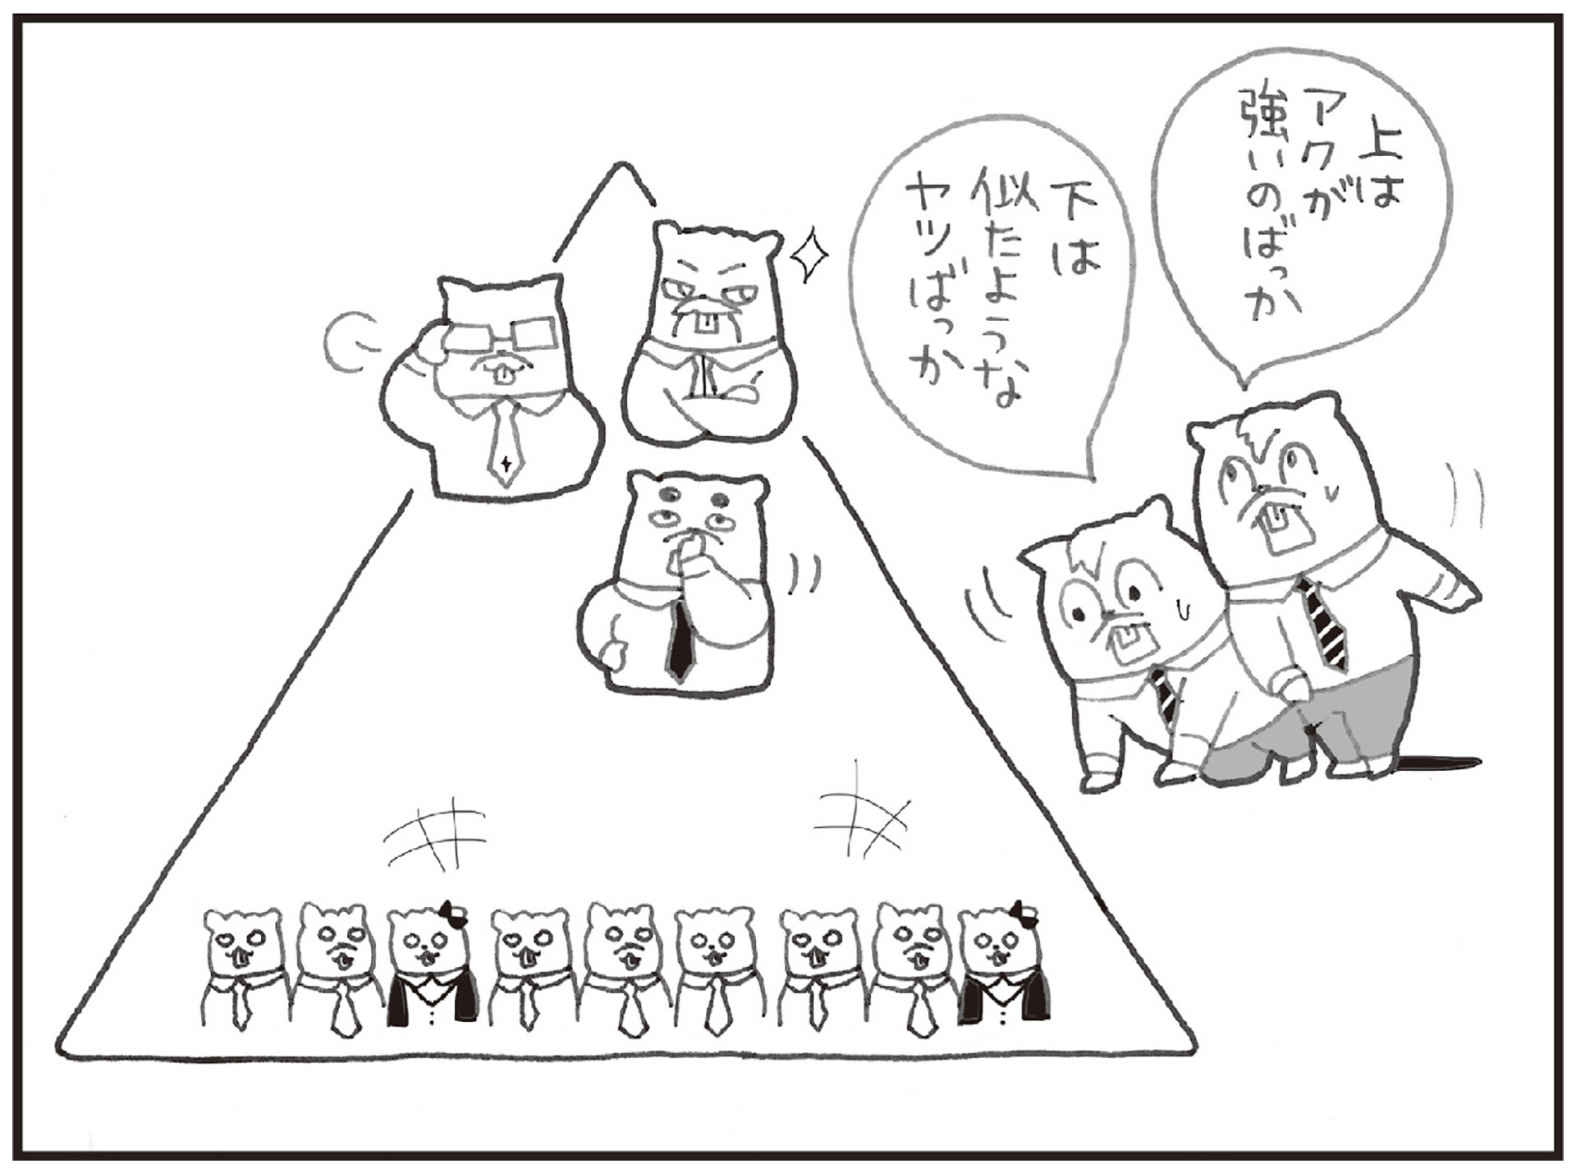 上は
アクが
強いのばっか
下は
似たような
ヤツばっか